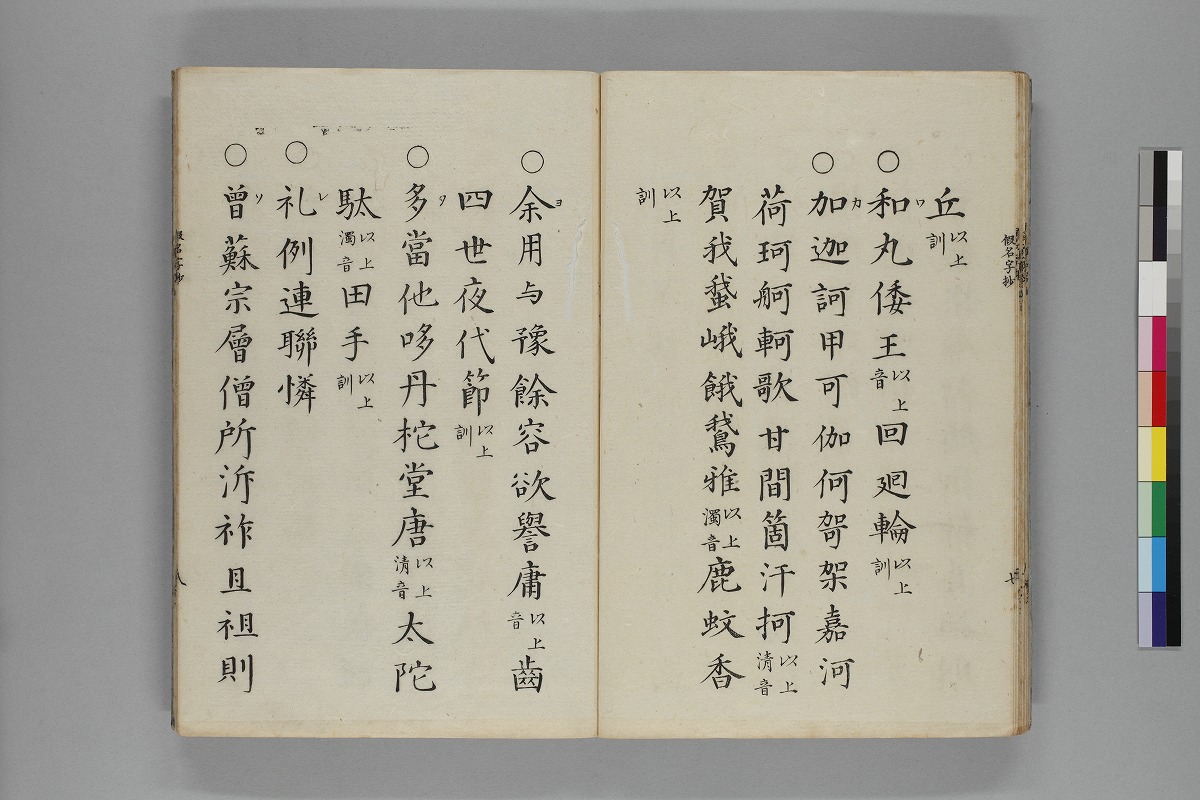 丘以上訓
○和ワ丸倭王以上音回廻輪以上訓
○加カ迦訶甲可伽何哿架嘉河
荷珂舸軻歌甘間箇汗柯以上清音
賀我蛾峨餓鵞雅以上濁音鹿蚊香
以上訓
○余ヨ用与豫餘容欲譽庸以上音齒
四世夜代節以上訓
○多タ當他哆丹柁堂唐以上清音太陀
駄以上濁音田手以上訓
○礼レ例連聯憐
○曾ソ蘇宗層僧所泝祚且祖則
假名字抄
七
假名字抄
八